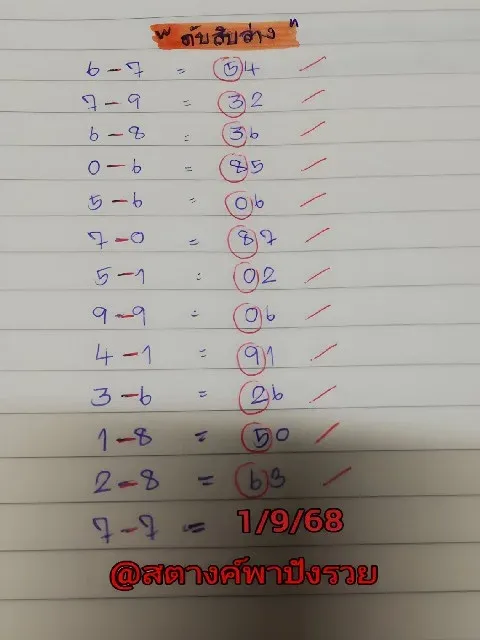 "ดับสิบล่าง"
6-7 = 54
7-9 = 32
6-8 = 36
0-6 = 85
5-6 = 06
7-0 = 87
5-1 = 02
9-9 = 06
4-1 = 91
3-6 = 26
1-8 = 50
2-8 = 63
7-7 = 1/9/68
@สตางค์พาปังรวย